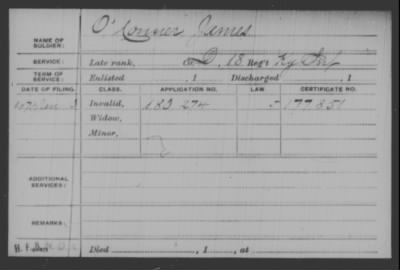 O'Connor James
NAME OF SOLDIER:
SERVICE: Late rank, Co. D, 18 Reg't Ky Inf
TERM OF SERVICE: Enlisted , 1 Discharged , 1
DATE OF FILING. CLASS. APPLICATION NO. LAW. CERTIFICATE NO.
Invalid, 183 274 - 177 851
Widow,
Minor,
ADDITIONAL SERVICES:
REMARKS:
Died , 1 , at